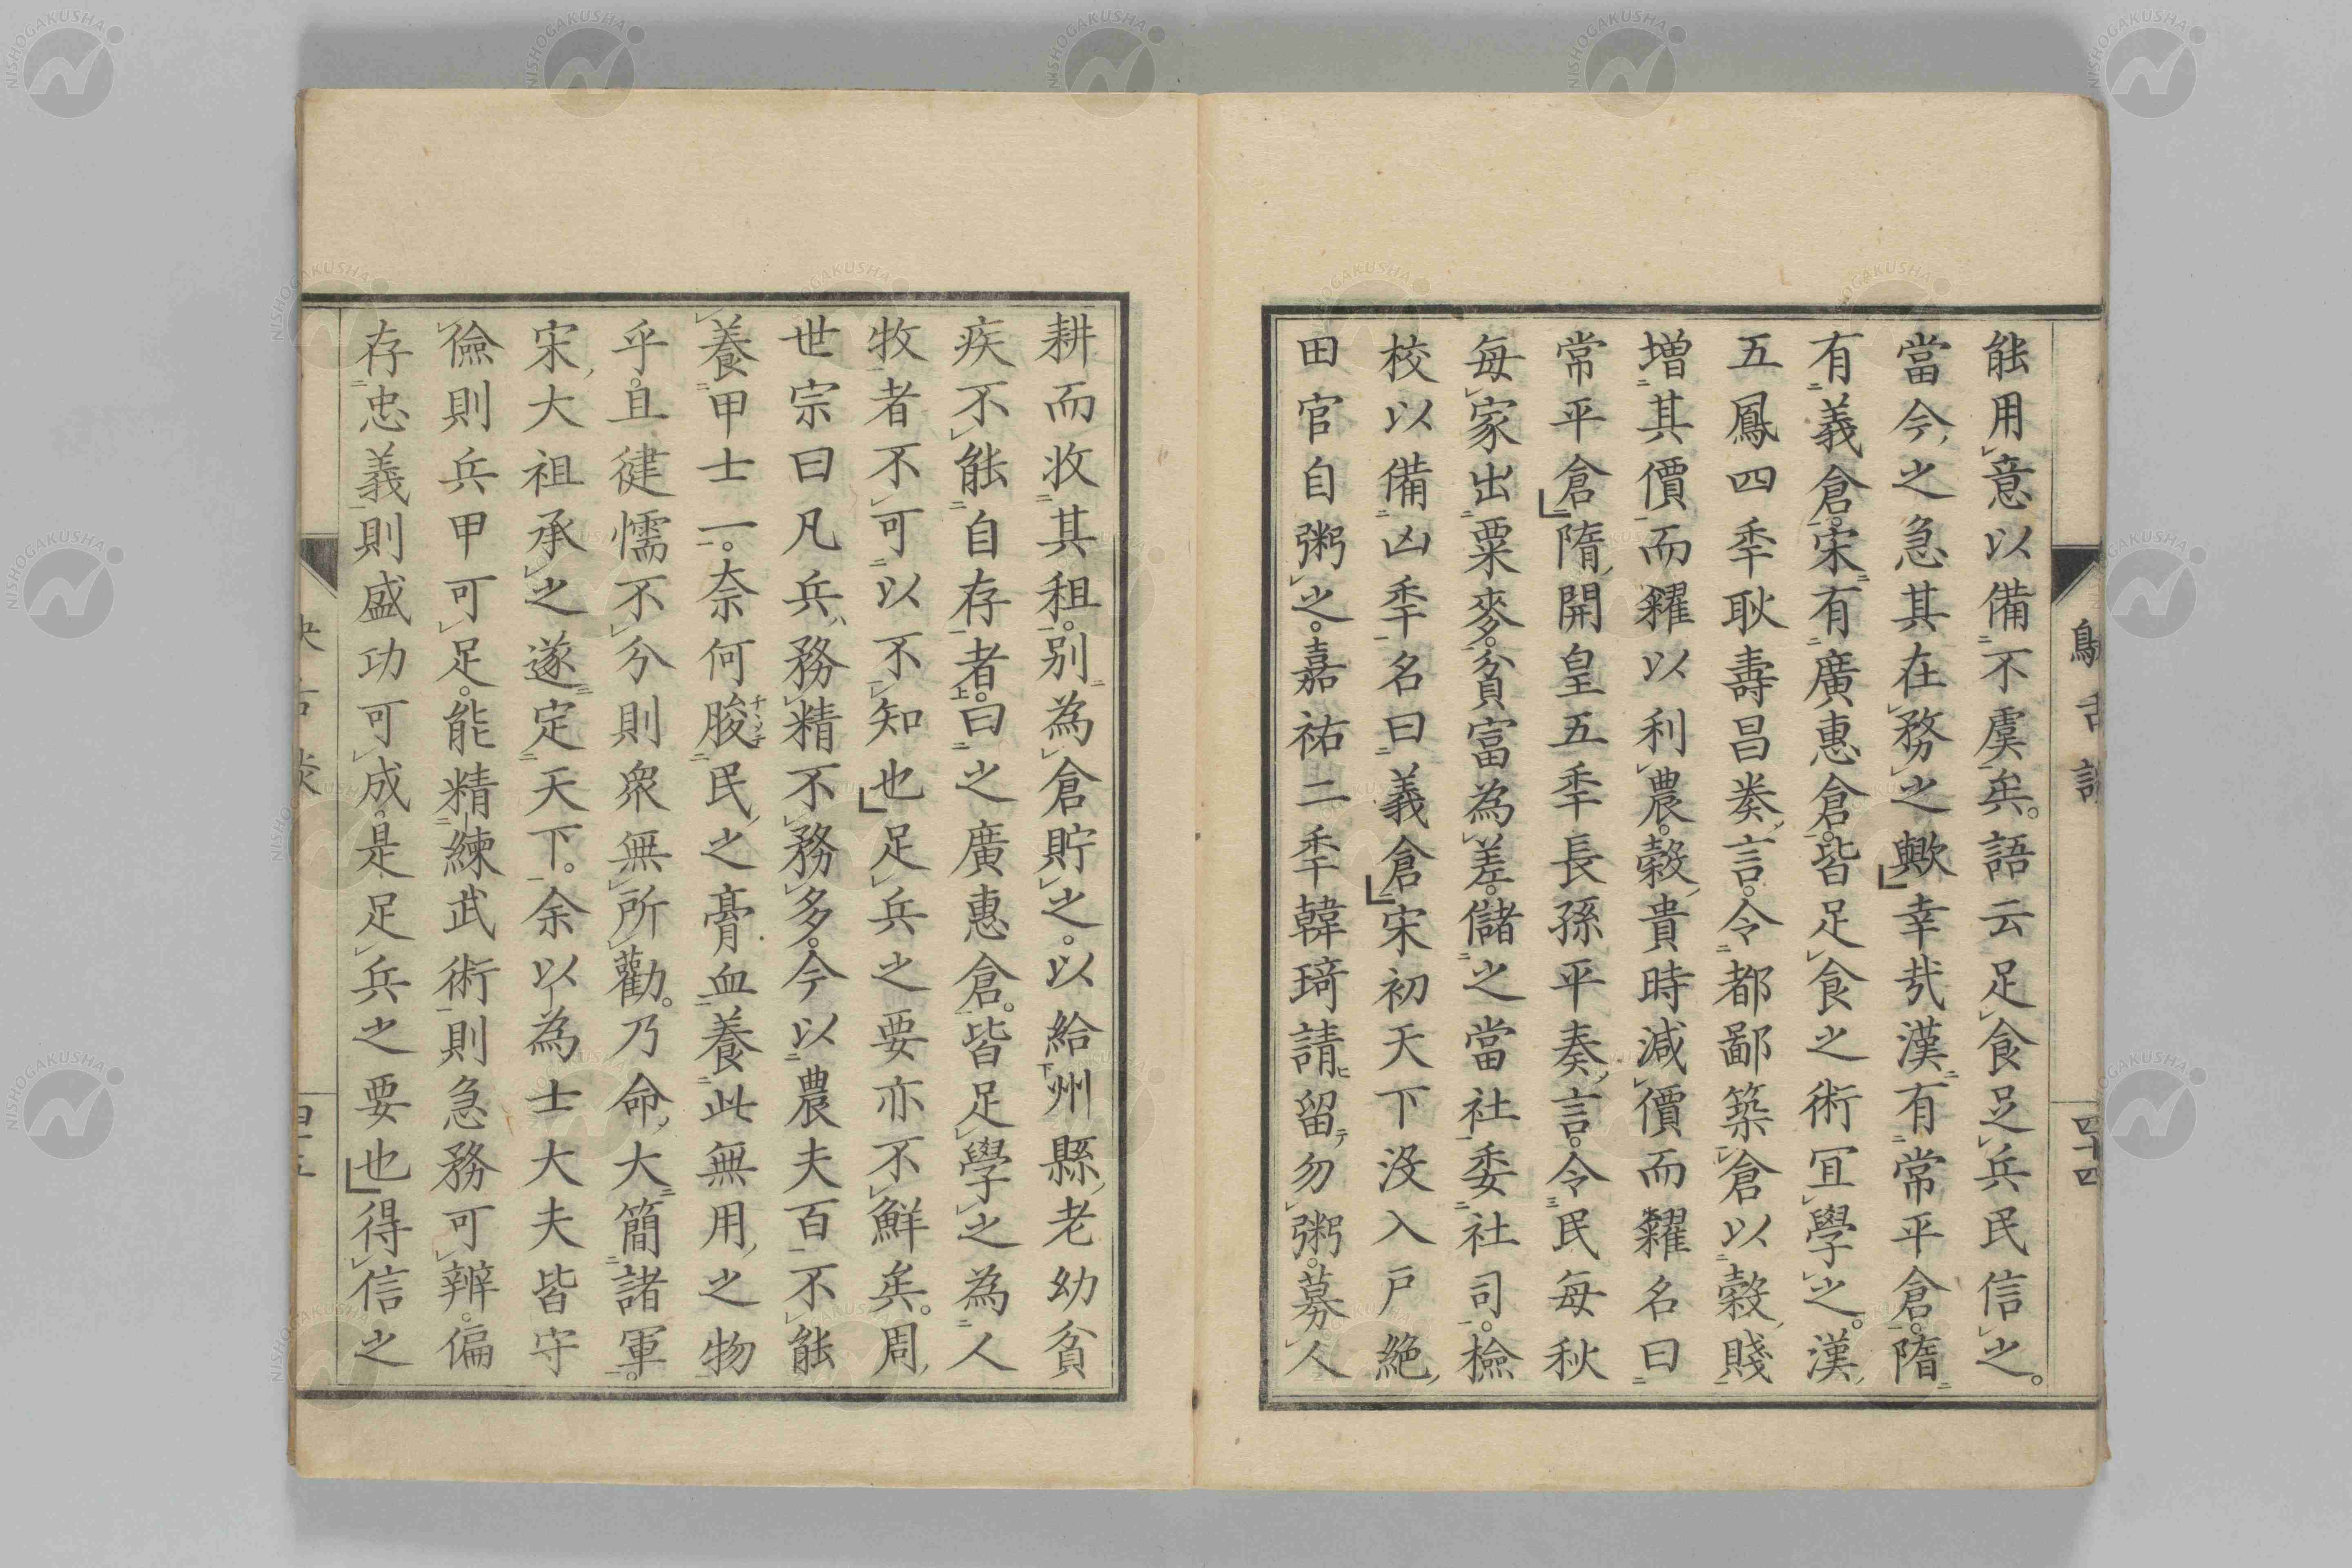 能用意以備不虞矣。語云足食足兵民信之。
當今之急其在務之歟幸哉漢有常平倉。隋
有義倉。宋有廣惠倉。皆足食之術冝學之。漢
五鳳四秊耿壽昌奏言。令都鄙築倉以穀賤
増其價而糴以利農。穀貴時減價而糶名曰
常平倉隋開皇五秊長孫平奏言。令民每秋
每家出粟麥。貧富為差。儲之當社委社司。檢
校以備凶秊名曰義倉宋初天下没入戸絶
田官自粥之。嘉祐二秊韓琦請留勿粥。募人
耕而收其租。別為倉貯之。以給州縣老幼貧
疾不能自存者。曰之廣惠倉。皆足學之為人
牧者不可以不知也足兵之要亦不鮮矣。周
世宗曰凡兵務精不務多。今以農夫百不能
養甲士一。奈何朘民之膏血養此無用之物
乎。且健懦不分則衆無所勸。乃命大簡諸軍。
宋大祖承之遂定天下。余以為士大夫皆守
儉則兵甲可足。能精練武術則急務可辨。偏
存忠義則盛功可成。是足兵之要也得信之
四十四